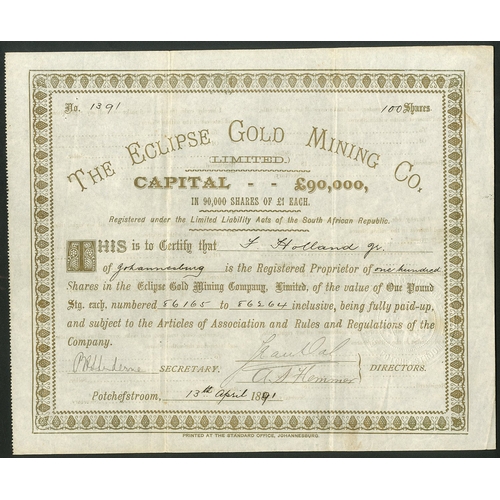 No. 1391 100 Shares
THE ECLIPSE GOLD MINING CO.
(LIMITED.)
CAPITAL - - £90,000,
IN 90,000 SHARES OF £1 EACH.
Registered under the Limited Liability Acts of the South African Republic.
THIS is to Certify that Holland jr.
of Johannesburg is the Registered Proprietor of one hundred
Shares in the Eclipse Gold Mining Company, Limited, of the value of One Pound
Stg. each, numbered 86165 to 86264 inclusive, being fully paid-up,
and subject to the Articles of Association and Rules and Regulations of the
Company.
SECRETARY. DIRECTORS.
Potchefstroom, 13th April 1891
PRINTED AT THE STANDARD OFFICE, JOHANNESBURG.